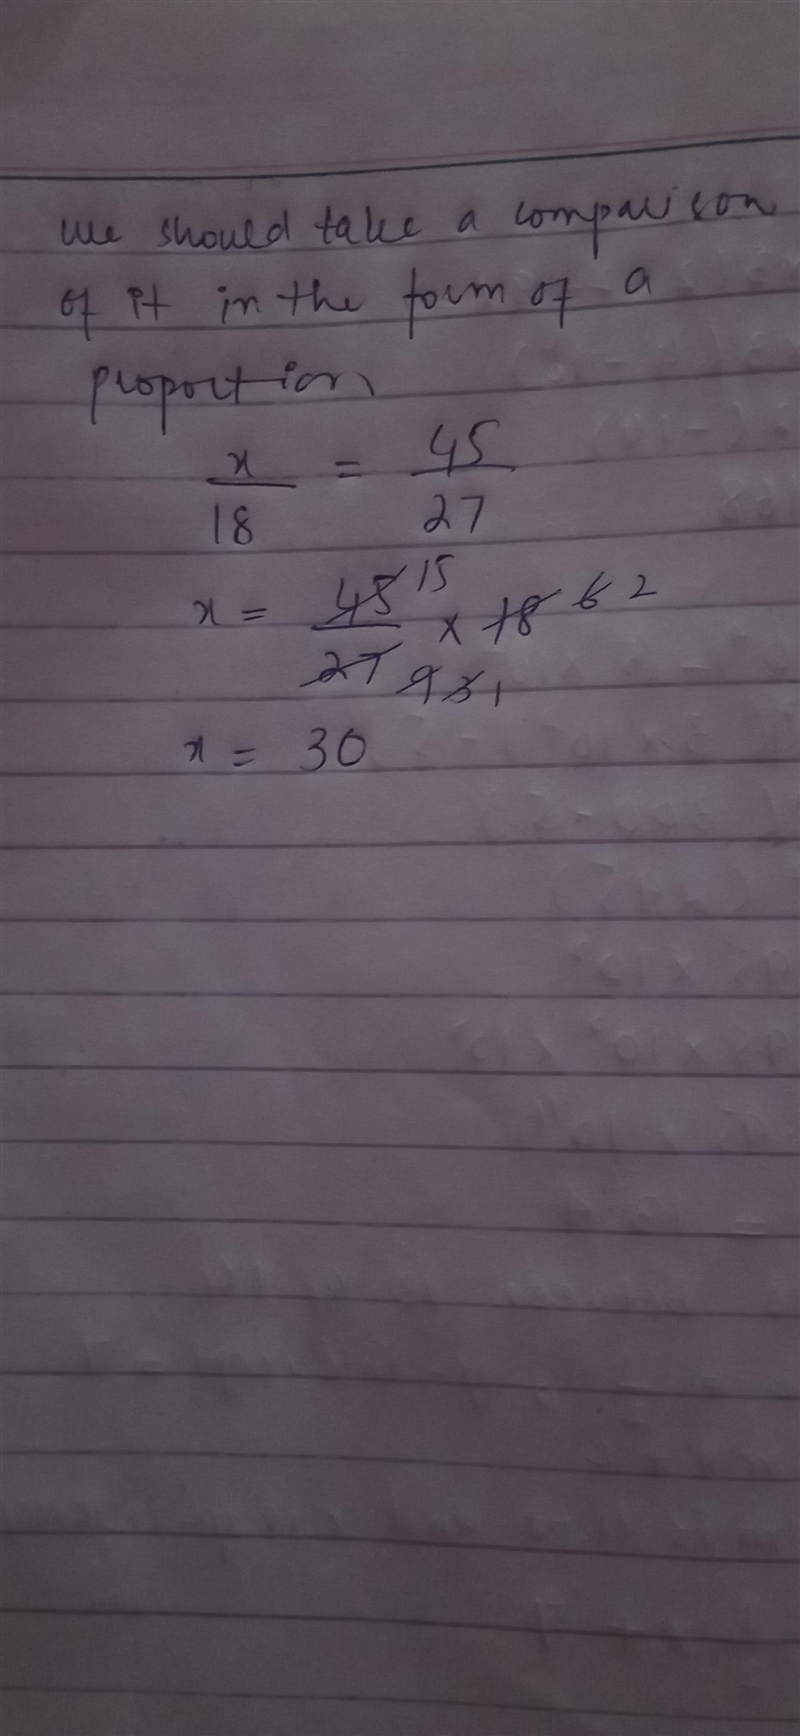 We should take a comparison
of it in the form of a
proportion
x/18 = 45/27
x = 45 15/27 9 3 1 x 18 6 2
x = 30